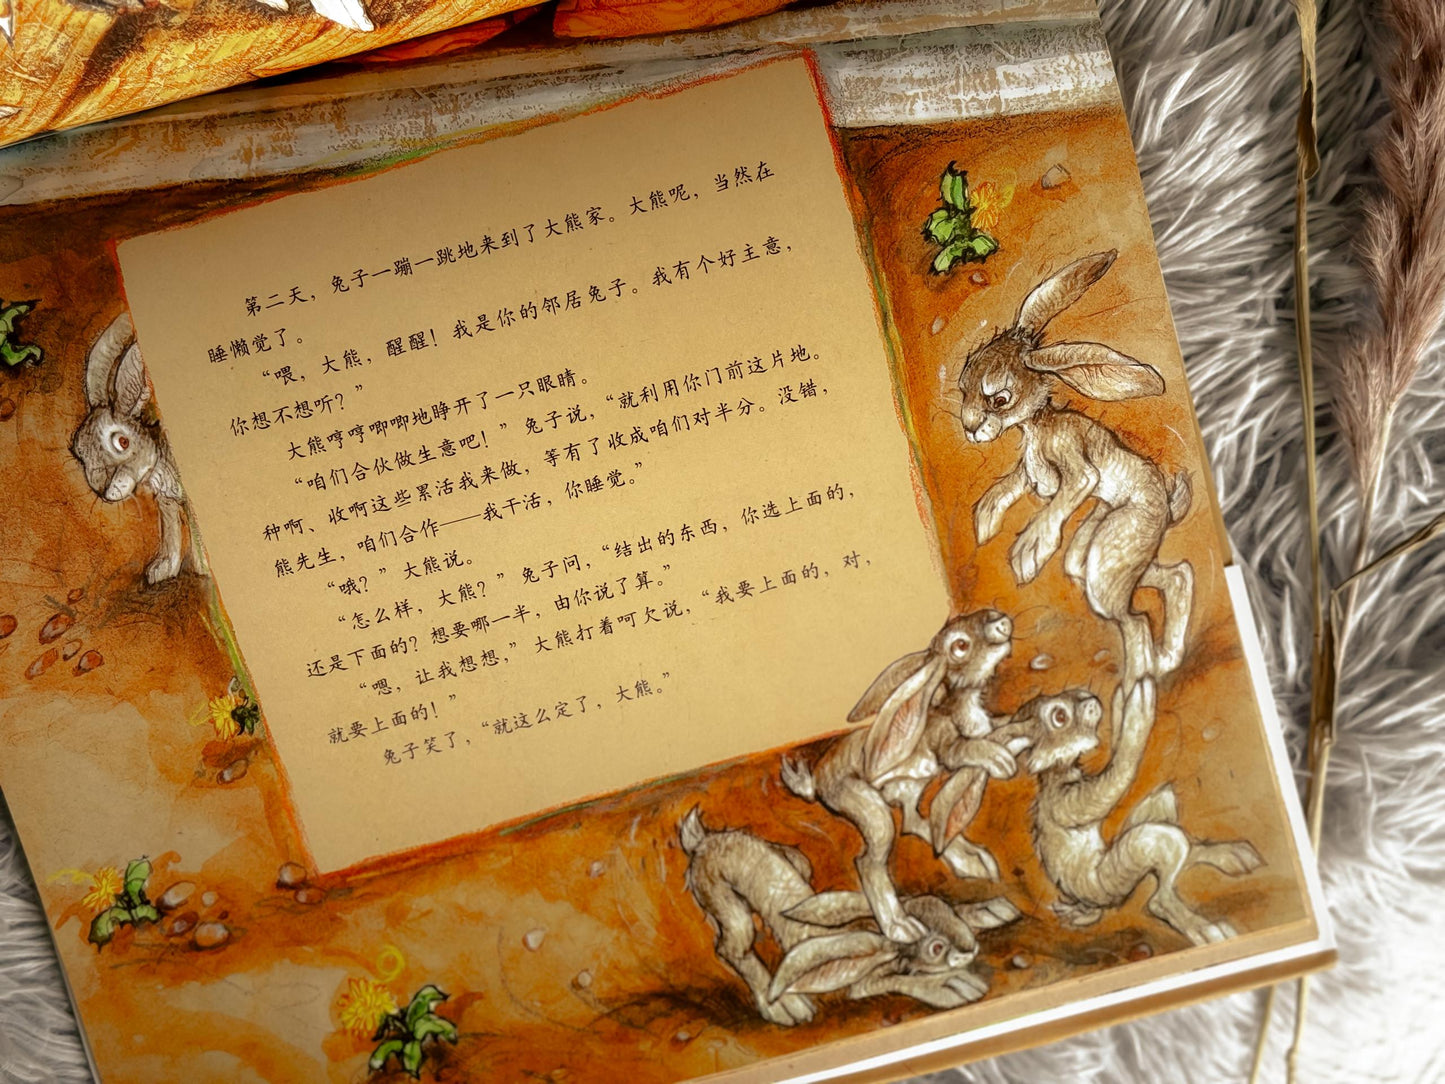 第二天，兔子一蹦一跳地来到了大熊家。大熊呢，当然在
睡懒觉了。
“喂，大熊，醒醒！我是你的邻居兔子。我有个好主意，
你想不想听？”
大熊哼哼唧唧地睁开了一只眼睛。
“咱们合伙做生意吧！”兔子说，“就利用你门前这片地。
种啊、收啊这些累活我来做，等有了收成咱们对半分。没错，
熊先生，咱们合作——我干活，你睡觉。”
“哦？”大熊说。
“怎么样，大熊？”兔子问，“结出的东西，你选上面的，
还是下面的？想要哪一半，由你说了算。”
“嗯，让我想想，”大熊打着呵欠说，“我要上面的，对，
就要上面的！”
兔子笑了，“就这么定了，大熊。”